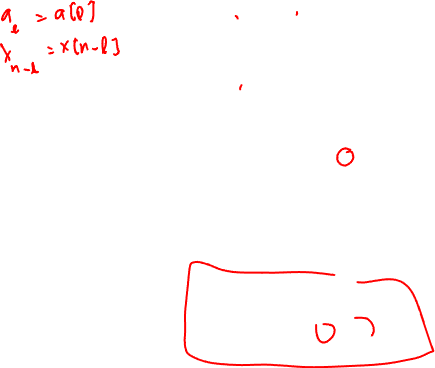 a_l = a[l]
x_{n-l} = x[n-l]